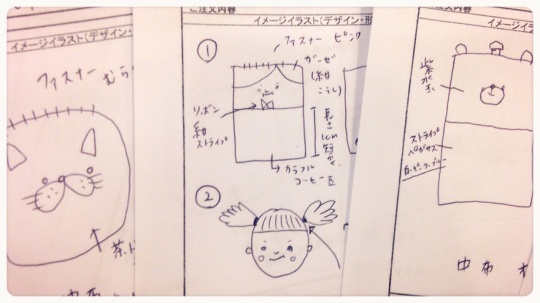 イメージイラスト(デザイン・
ファスナー むらさ
茶
ご注文内容
イメージイラスト(デザイン・形
①
ファスナー ピンク
ガーゼ
(紺
こうし)
リボン
紺
ストライプ
長さ
1cm
短かく
カラフル
コーヒー豆
②
イメージイラスト(デザイン・
紫水玉
ストライプ
ペガサス
白・ピンク・ブルー
中 布